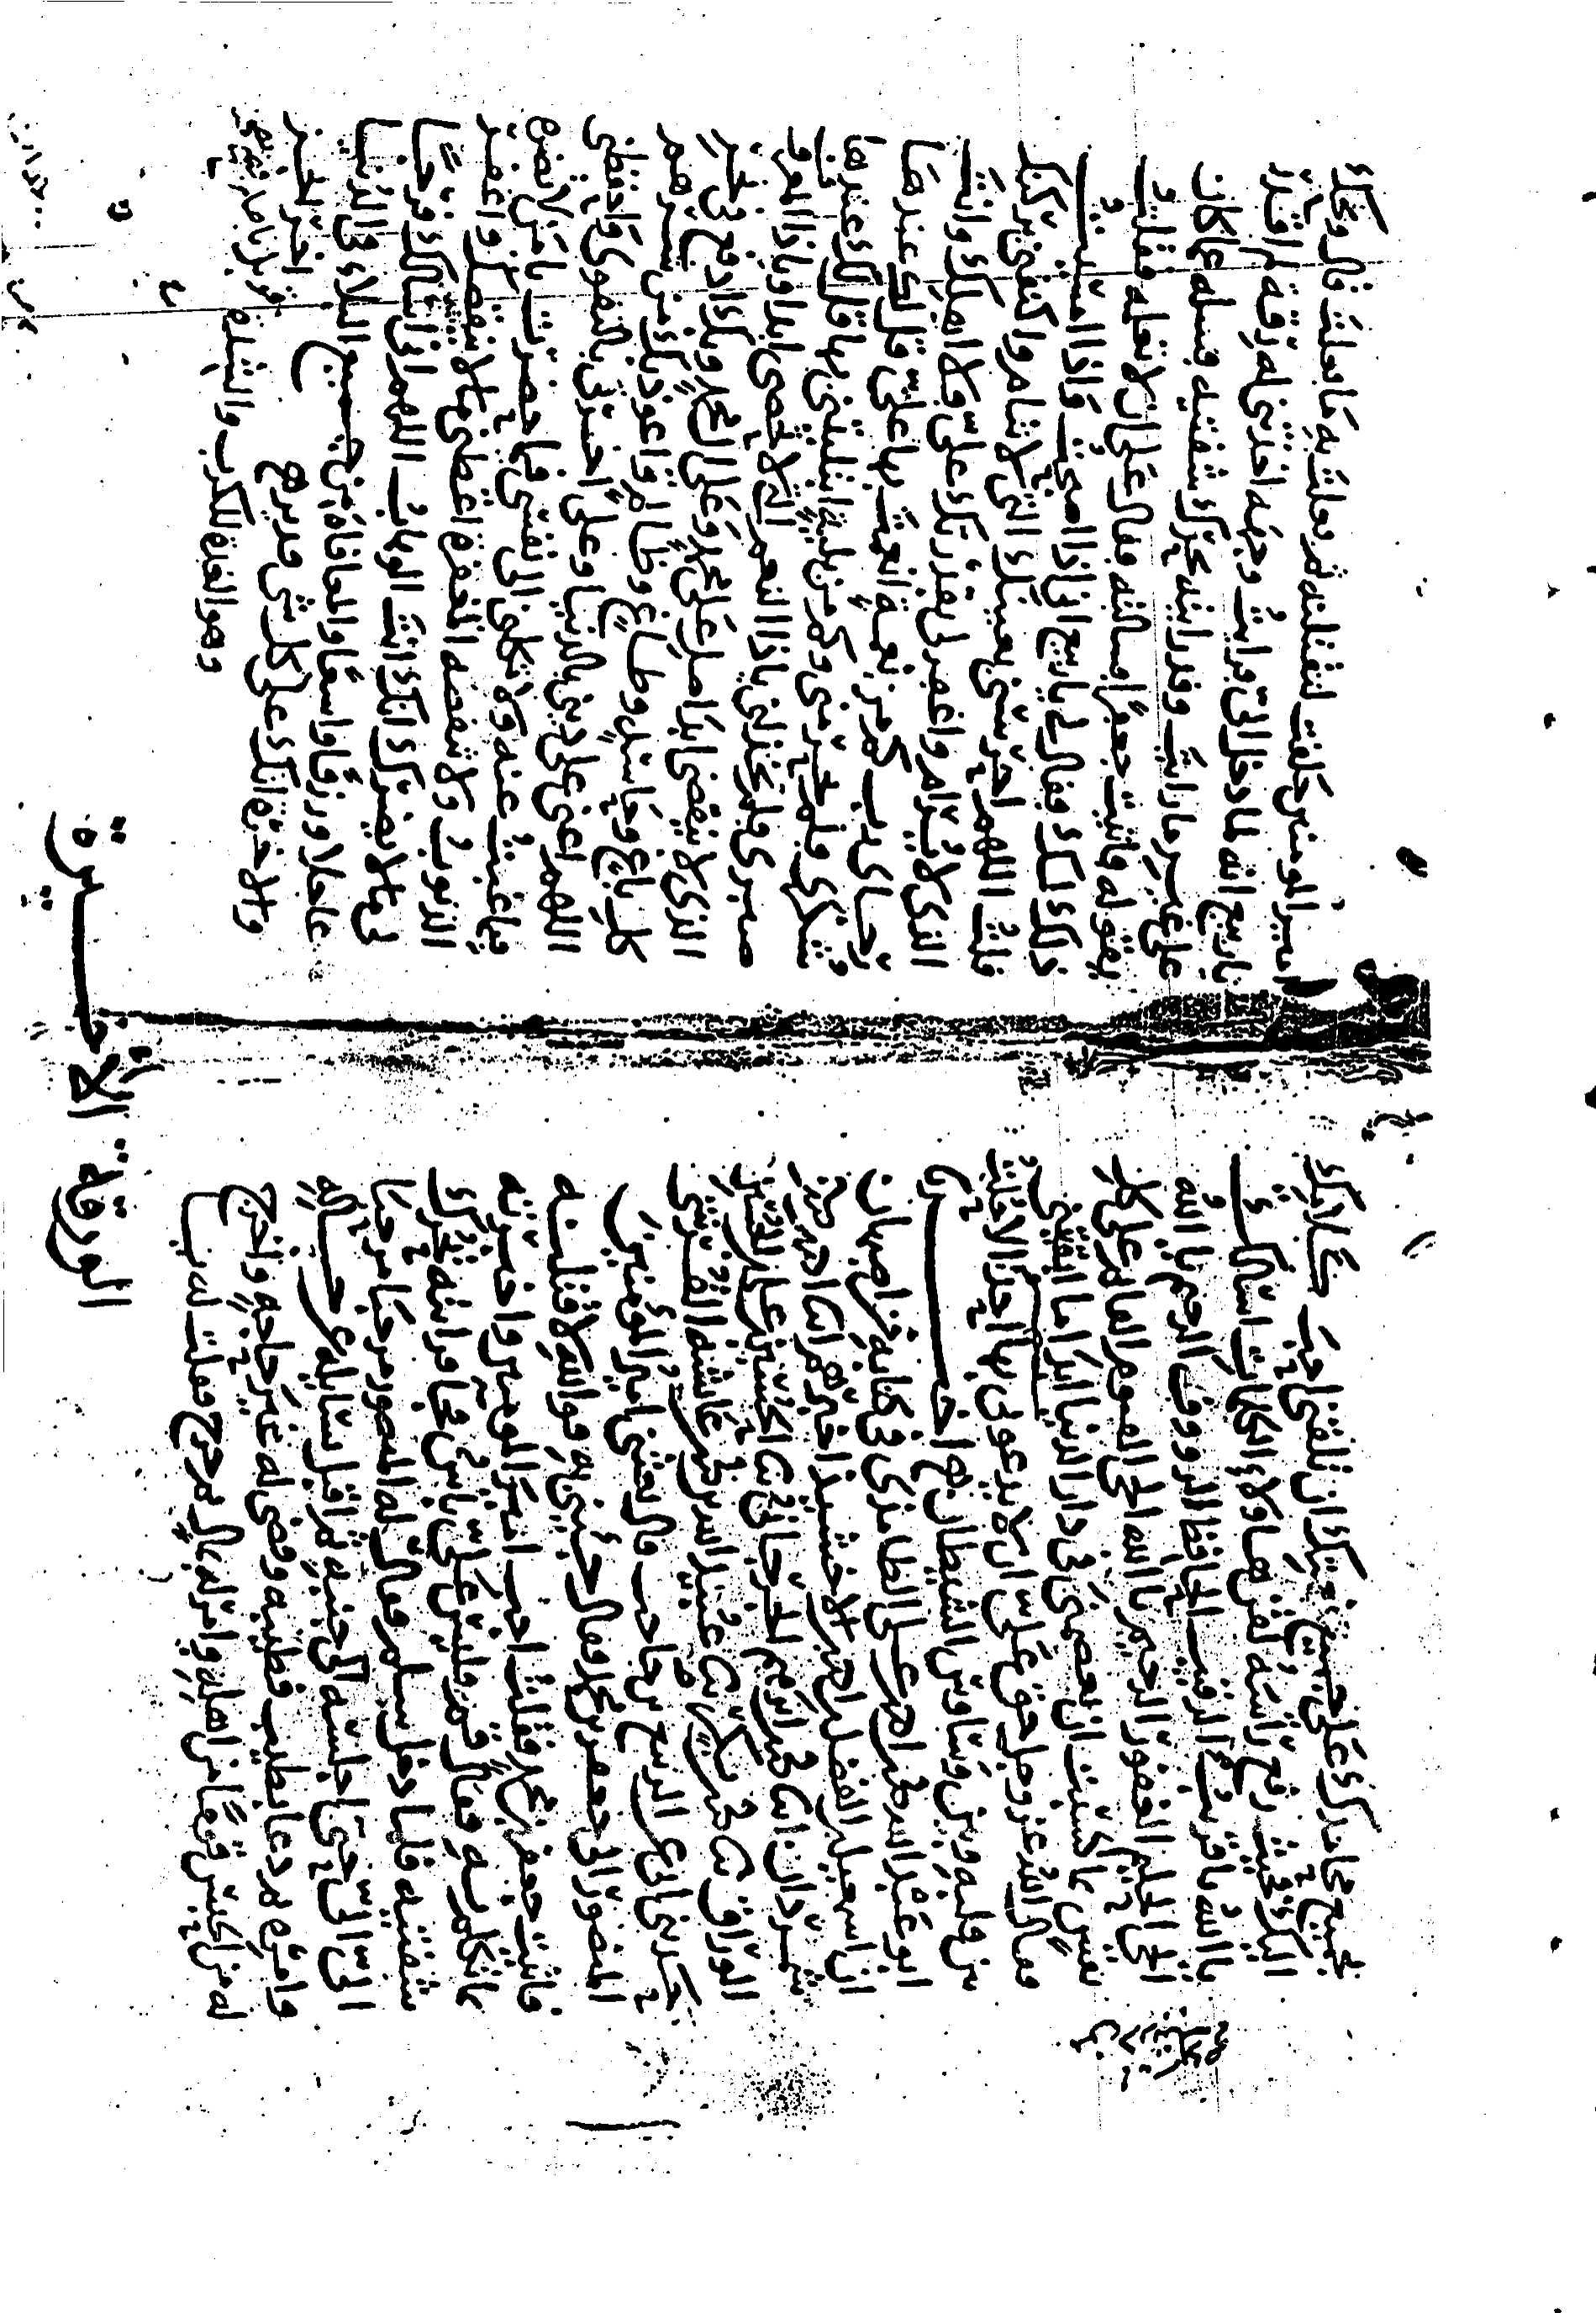 اليك رفع راسه لقن هاولاء الكلمات اسالك
يا الله يا قريب الرقيب الحافظ الرووف الرحيم يا الله
الحى الحليم الغفور الرحيم يا الله الحى القيوم القايم على كل
نفس بما كسبت ان تعصمنى فى دار الدنيا ابدا ما ابقيتنى
وقال الله عز وجل حق على ان لا يدعونى بها احد الا اجبته
من قلبه وبين وساوس الشيطان اخر
ابو عبد الله محمد بن احمد بن على النطنزى فى كتابه من اصبهان
ان اسمعيل بن الفضل بن احمد بن الاخشيد اخبرهم انا احمد بن
انا محمد بن ابرهيم نا الحسين بن على
الوراق نا محمد بن نا عبيد الله بن محمد بن عايشه القرشى
حدثنى ابى عن الربيع بن حاجب قال بعثنى امير المومنين
المنصور الى جعفر بن محمد وقال جئنى به فوالله لاقتلنه
فاتيت جعفر بن محمد فقلت اجب امير المومنين واخبرته
بما تكلم به فقال قم فليس على باس فجا فرايته يحرك
شفتيه فلما دخل سلم وقال له المنصور مرحبا مرحبا
الى الى حتى اجلسه الى جنبه ثم اقبل يسايله عن حاله
وامره ثم دعا بطيب فطيبه وقضى له غير حاجة واخرج
له من قوما من اهله وامر له بمال ثم خرج فقلت له يا
امير المومنين حلفت لتقتلنه ثم فعلت به ما فعلت قال ويحك
يا ربيع انه لما دخل الى فرايت وجهه اخذتنى له رقه لم اقدر
على غير ما رايت وقد رايته يحرك شفتيه فسله عما كان
يقوله فاتيت جعفرا فسالته فقال على ان لا تعلمه فقلت
ذلك لك فقال لى يا ربيع اذا اصبحت واذا امسيت
فقلت اللهم احرسنى بعينك التى لا تنام واكنفنى بركنك
الذى لا يرام واغفر لى بقدرتك على ولا اهلك وانت
رجاى يا رب كم من نعمة انعمت بها على قل لك عندها
شكرى فلم تحرمنى وكم من بلية ابتليتنى بها قل لك عندها
صبرى فلم تخذلنى يا ذا النعم التى لا تحصى ابدا ويا ذا المعروف
الذى لا ينقضى ابدا صل على محمد وعلى ال محمد وبك ادفع فى نحر
كل باغ وحاسد وطاغ وظالم واعوذ بك من شرهم
اللهم اعنى على دينى بالدنيا وعلى اخرتى بالتقوى واحفظنى
فيما غبت عنه ولا تكلنى الى نفسى فيما حضرت يا من لا تضره
الذنوب ولا تنقصه المغفرة اعطنى ما لا ينقصك واغفر
لى ما لا يضرك انك انت الوهاب اللهم انى اسالك فرجا
عاجلا ورزقا واسعا والمعافاة من جميع البلاء فى الدنيا
والاخرة انك على كل شى قدير اخر
وهو للكرب والشده
الورقة الأخيرة